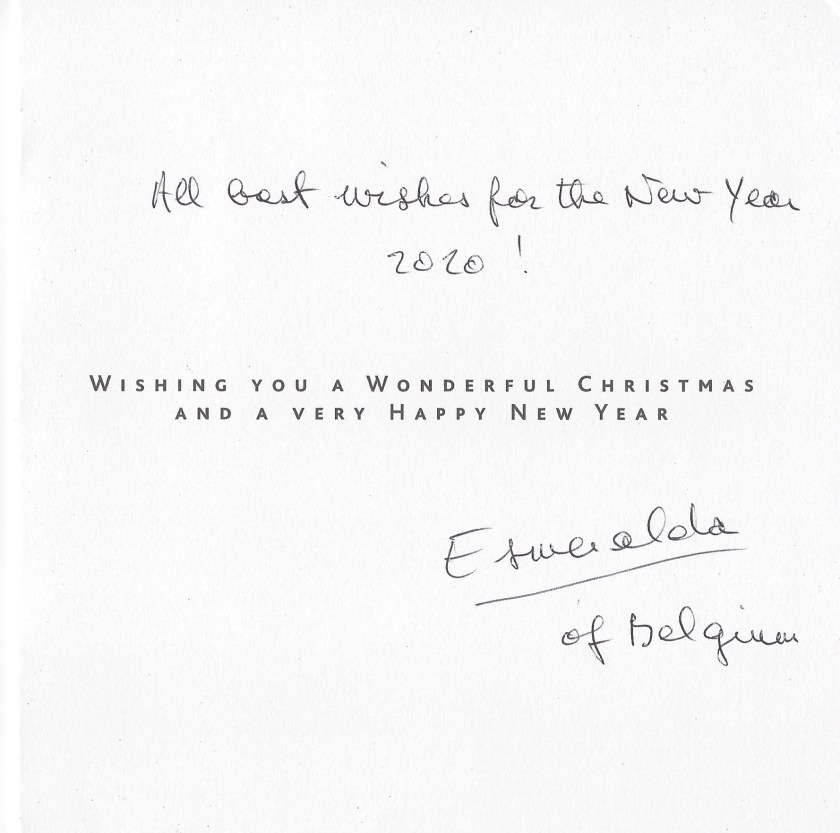 All best wishes for the New Year
2020 !
WISHING YOU A WONDERFUL CHRISTMAS
AND A VERY HAPPY NEW YEAR
Esmeralda
of Belgium